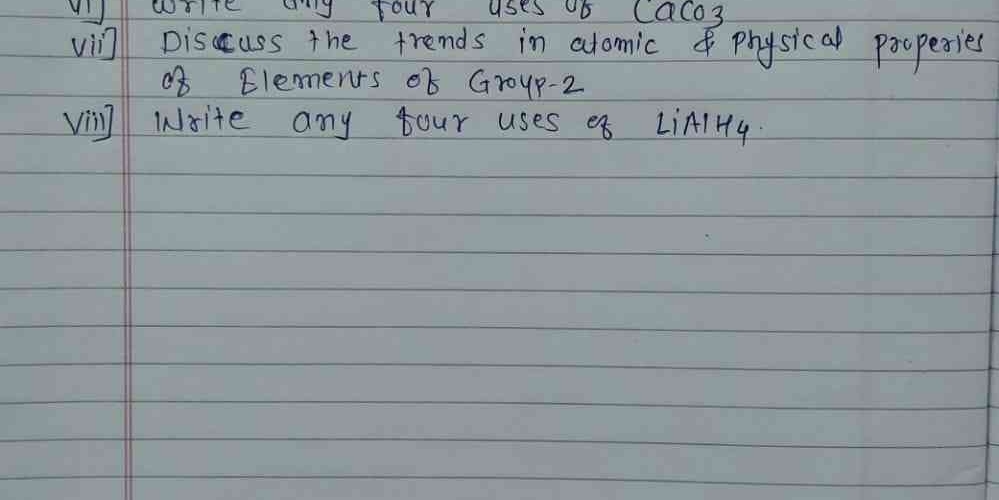 vi] Write any four uses of CaCO3
vii] Discuss the trends in atomic & physical properies
of Elements of Group-2
viii] Write any four uses of LiAlH4.